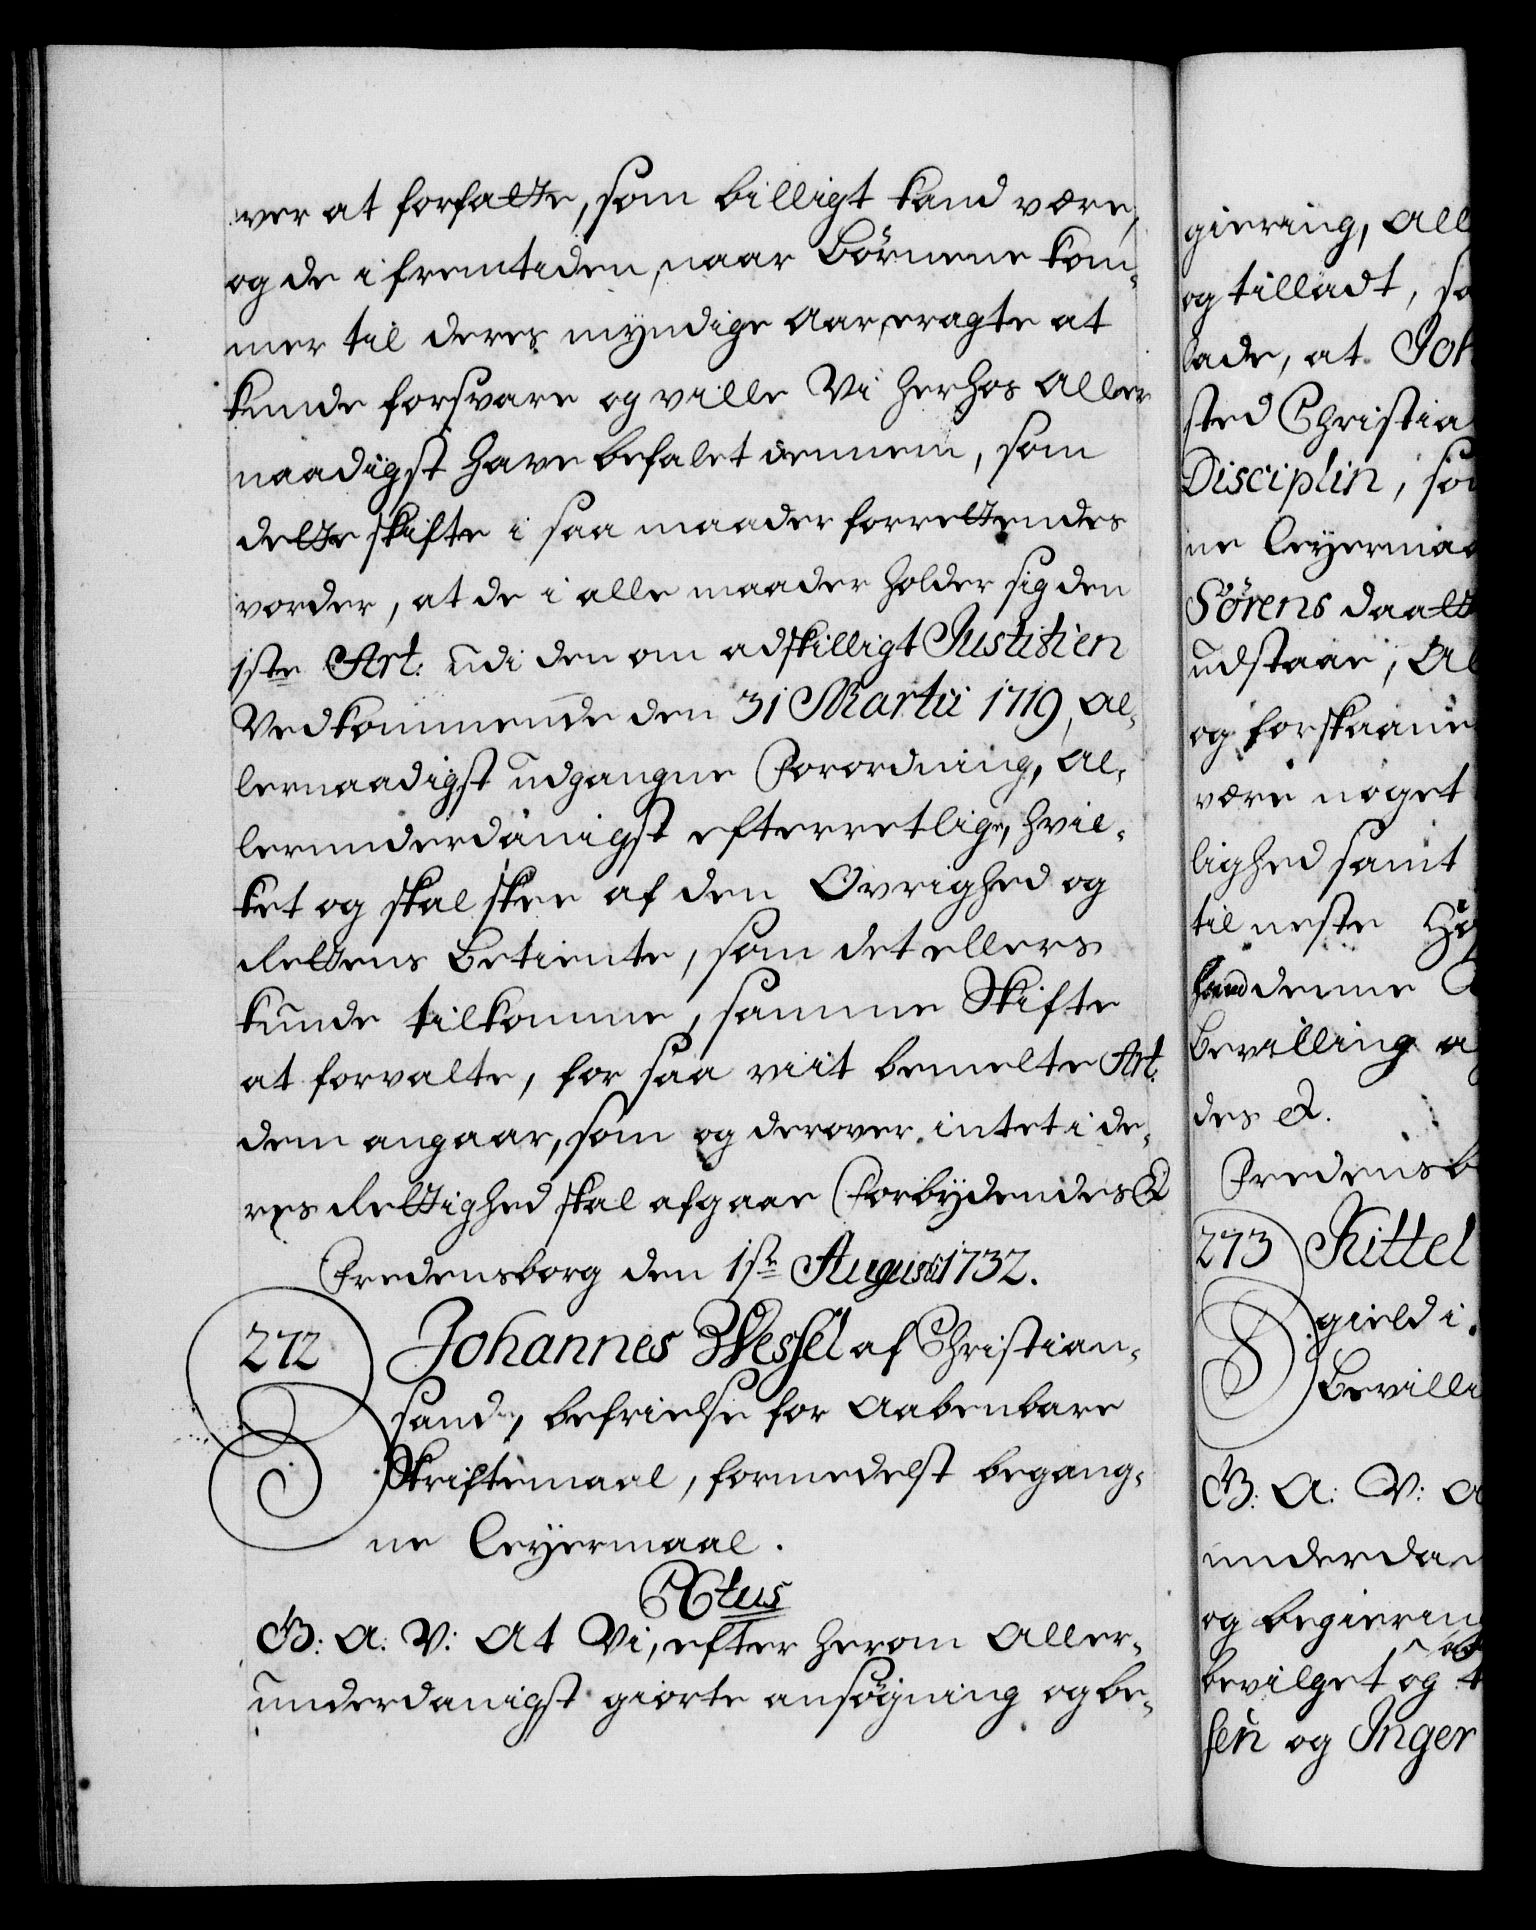 ver at forfatte, som billigt kand være,
og de i fremtiden, naar Börnene kom¬
mer til deres myndige Aar, eragte at
kunde forsvare og ville Vi herhos Aller
naadigst have befalet dennem, som
dette skifte i saa maader forrettendes
vorder, at de i alle maader holder sig den
1ste Art. udi den om adskilligt Justitien
Vedkommende den 31 Martii 1719, Al¬
lernaadigst udgangne Forordning, Al¬
lerunderdanigst efterretlige, hvil¬
ket og skal skee af den Øvrighed og
Rettens Betiente, som det ellers
kunde tilkomme, samme Skifte
at forvalte, for saa viit bemelte Art.
dem angaar, som og derover intet i de¬
res Rettighed skal afgaae Forbydendes &
Fredensborg den 1ste Augusti 1732.
272 Johannes Wessel af Christian¬
sand, befrielse for Aabenbare
Skriftemaal, formedelst begang¬
ne Leyermaal.
Actus
G: A: V: At Vi, efter herom Aller¬
underdanigst giorte ansøgning og be¬
giering, All
og tilladt, so
lade, at Joh
sted Christia
Disciplin, so
ne Leyermaa
Sörens daatt
udstaae, Al
og forskaane
være noget
lighed samt
til neste
denne
Bevilling a
des &.
Fredensb
273 Kittel
gield i
Bevilli
G: A: V: A
underdan
og begiering
bevilget og t
sen og Inger